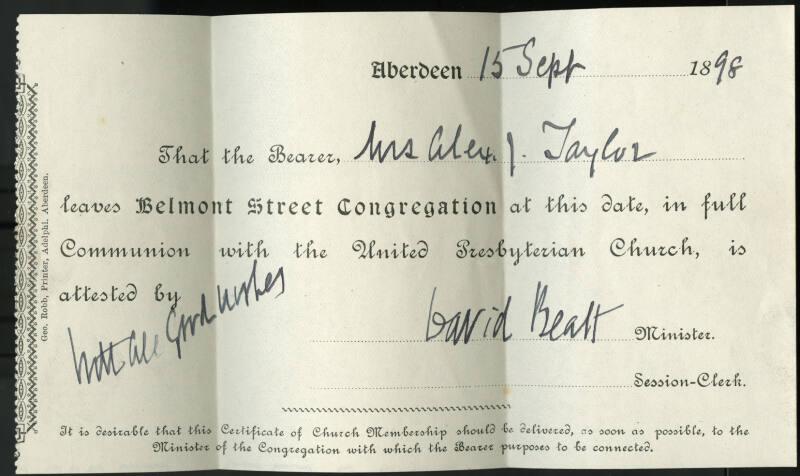 Aberdeen 15 Sept 1898
That the Bearer, Mrs Alex. J. Taylor
leaves Belmont Street Congregation at this date, in full
Communion with the United Presbyterian Church, is
attested by
With all good wishes
David Beatt Minister.
Session-Clerk.
It is desirable that this Certificate of Church Membership should be delivered, as soon as possible, to the
Minister of the Congregation with which the Bearer purposes to be connected.
Geo. Robb, Printer, Adelphi, Aberdeen.